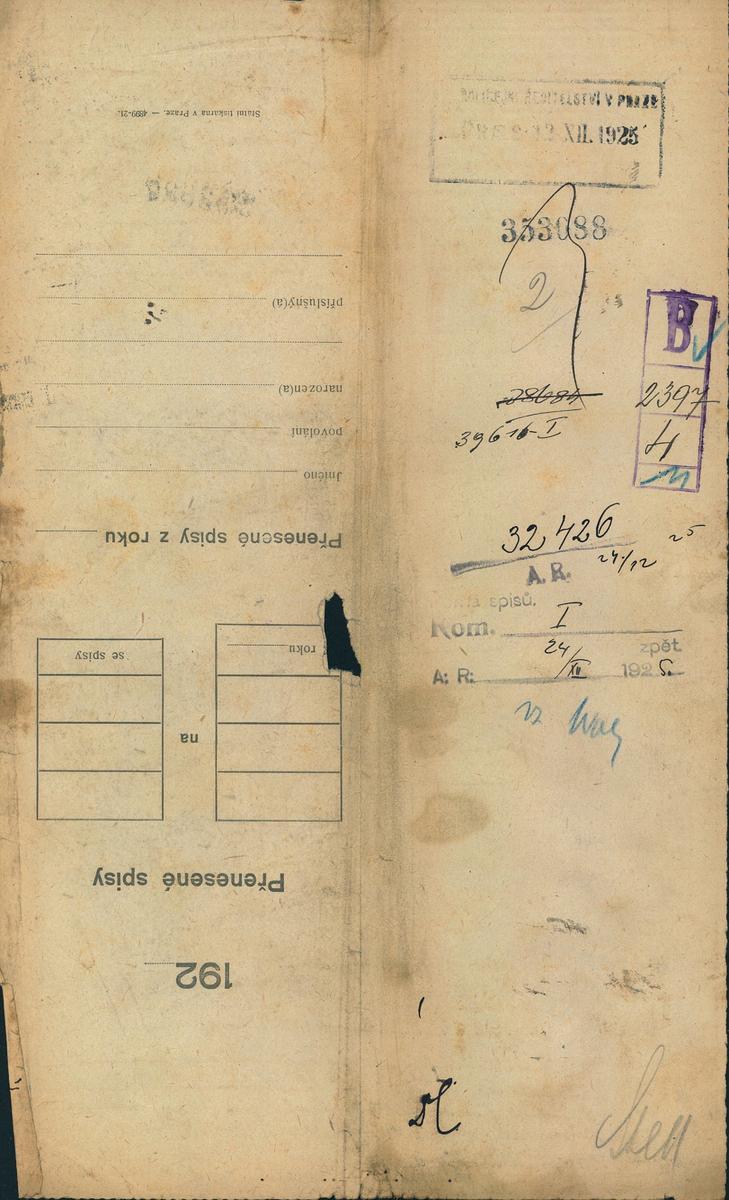 POLICEJNÍ ŘEDITELSTVÍ V PRAZE
XII. 1925
353088
2
B
2397
4
39616-I
32426
24/12 25
A. R.
spisů.
Kom. I
24/XII
zpět.
A: R: 1925.
192
Přenesené spisy
na
roku
se spisy
Přenesené spisy z roku
Jméno
povolání
narozen(a)
příslušný(a)
Státní tiskárna v Praze. — 4899-21.